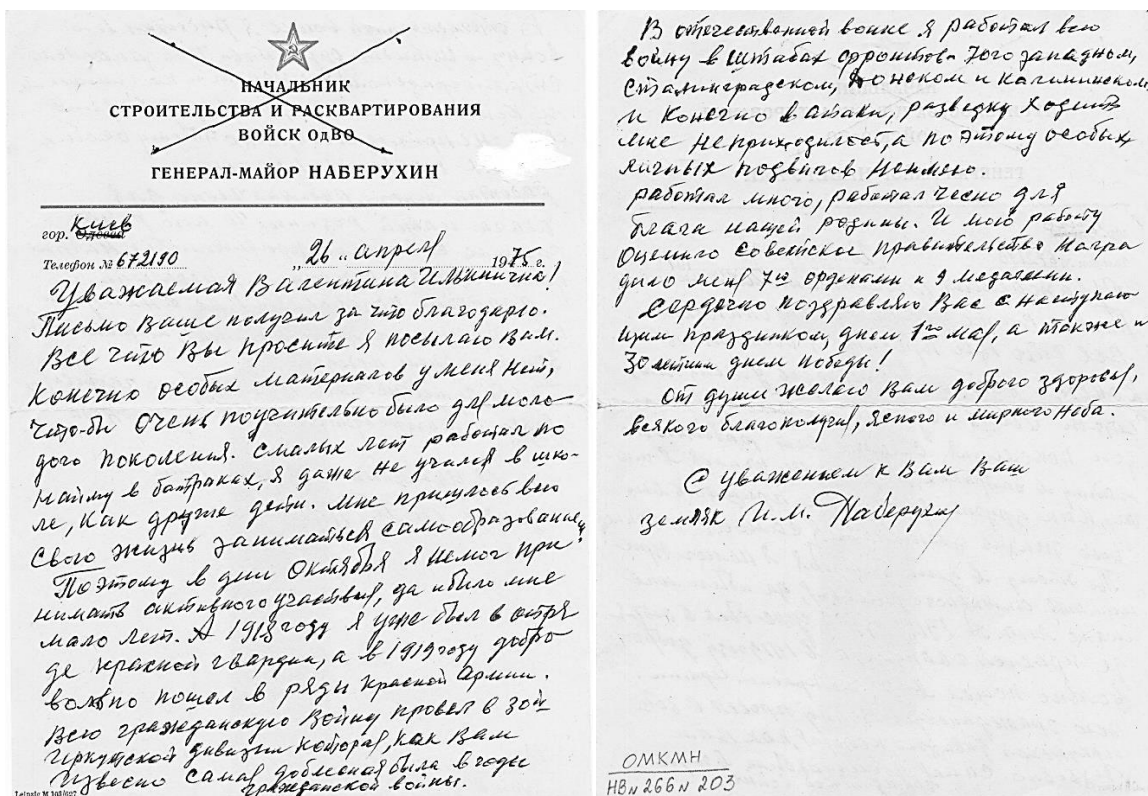 НАЧАЛЬНИК
СТРОИТЕЛЬСТВА И РАСКВАРТИРОВАНИЯ
ВОЙСК ОДВО
ГЕНЕРАЛ-МАЙОР НАБЕРУХИН
гор. Киев Одесса
Телефон № 672190 „26" апреля 1975 г.
Уважаемая Валентина Ильинична!
Письмо Ваше получил за что благодарю.
Все что Вы просите я посылаю Вам.
Конечно особых материалов у меня нет,
что-бы очень поучительно было для моло-
дого поколения. Смалых лет работал по
найму в батраках, я даже не учился в шко-
ле, как другие дети. Мне пришлось всю
свою жизнь заниматься самообразованием
Поэтому в дни Октября я немог при-
нимать активного участия, да и было мне
мало лет. А 1918 году я уже был в отря
де красной гвардии, а в 1919 году добро
вольно пошел в ряды Красной Армии.
Всю гражданскую войну провел в 30й
Иркутской дивизии которая, как Вам
извесно самая доблесная была в годы
гражданской войны.
Leipzig M 103/627
В отечественной войне я работал всю
войну в штабах фронтов- Юго западном,
Сталинградском, Донском и Калининском
и Конечно в атаки, разведку ходить
мне неприходилост, а поэтому особых
личных подвигов Неимею
работал много, работал чесно для
блага нашей родины. И мою работу
оценило Советское правительство Награ
дило меня 7ю орденами и 9 медалями.
Сердечно поздравляю Вас с наступаю
щим праздником, днем 1го мая, а также и
30 летним днем победы!
От души желаю Вам доброго здоровья,
всякого благополучия, ясного и мирного неба.
С уважением к Вам Ваш
земляк И.М. Наберухин
ОМКМН
НВ № 266 № 203